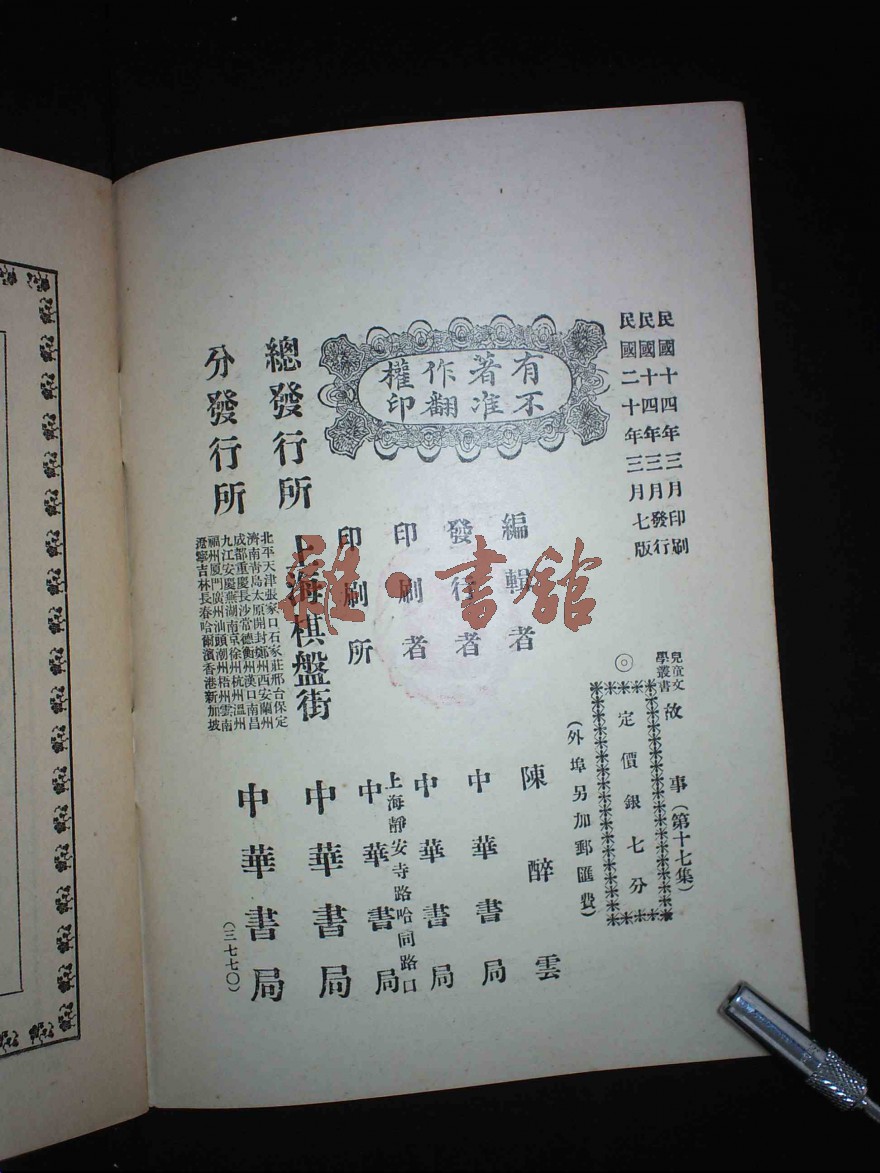 民國十四年三月印刷
民國十四年三月發行
民國二十年三月七版
兒童文學叢書 故事(第十七集)
◎定價銀七分
(外埠另加郵匯費)
有著作權
不准翻印
編輯者 陳醉雲
發行者 中華書局
印刷者 中華書局
印刷所 上海靜安寺路哈同路口 中華書局
總發行所 上海棋盤街 中華書局
分發行所
北平天津張家口石家莊邢台保定
濟南青島太原開封鄭州西安蘭州
成都重慶長沙常德衡州漢口南昌
九江安慶蕪湖南京徐州杭州溫州
福州厦門廣州汕頭潮州梧州雲南
遼寧吉林長春哈爾濱香港新加坡
中華書局
(三七七〇)
雜·書館